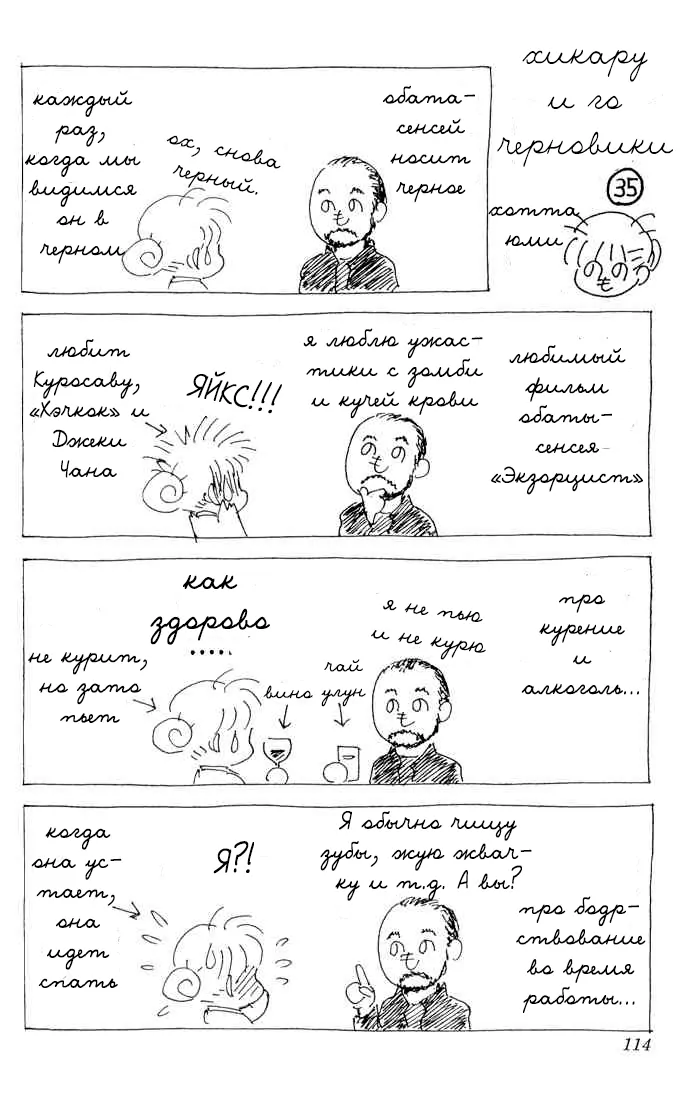 хикару
и го
черновики
35
хотта
юми
обата-
сенсей
носит
черное
ох, снова
черный.
каждый
раз,
когда мы
видимся
он в
черном
любимый
фильм
обаты-
сенсея
«Экзорцист»
я люблю ужас-
тики с зомби
и кучей крови
ЯЙКС!!!
любит
Куросаву,
«Хэчкок» и
Джеки
Чана
про
курение
и
алкоголь...
я не пью
и не курю
чай
улун
вино
как
здорово
.....
не курит,
но зато
пьет
про бодр-
ствование
во время
работы...
Я обычно чищу
зубы, жую жвач-
ку и т.д. А вы?
Я?!
когда
она ус-
тает,
она
идет
спать
114